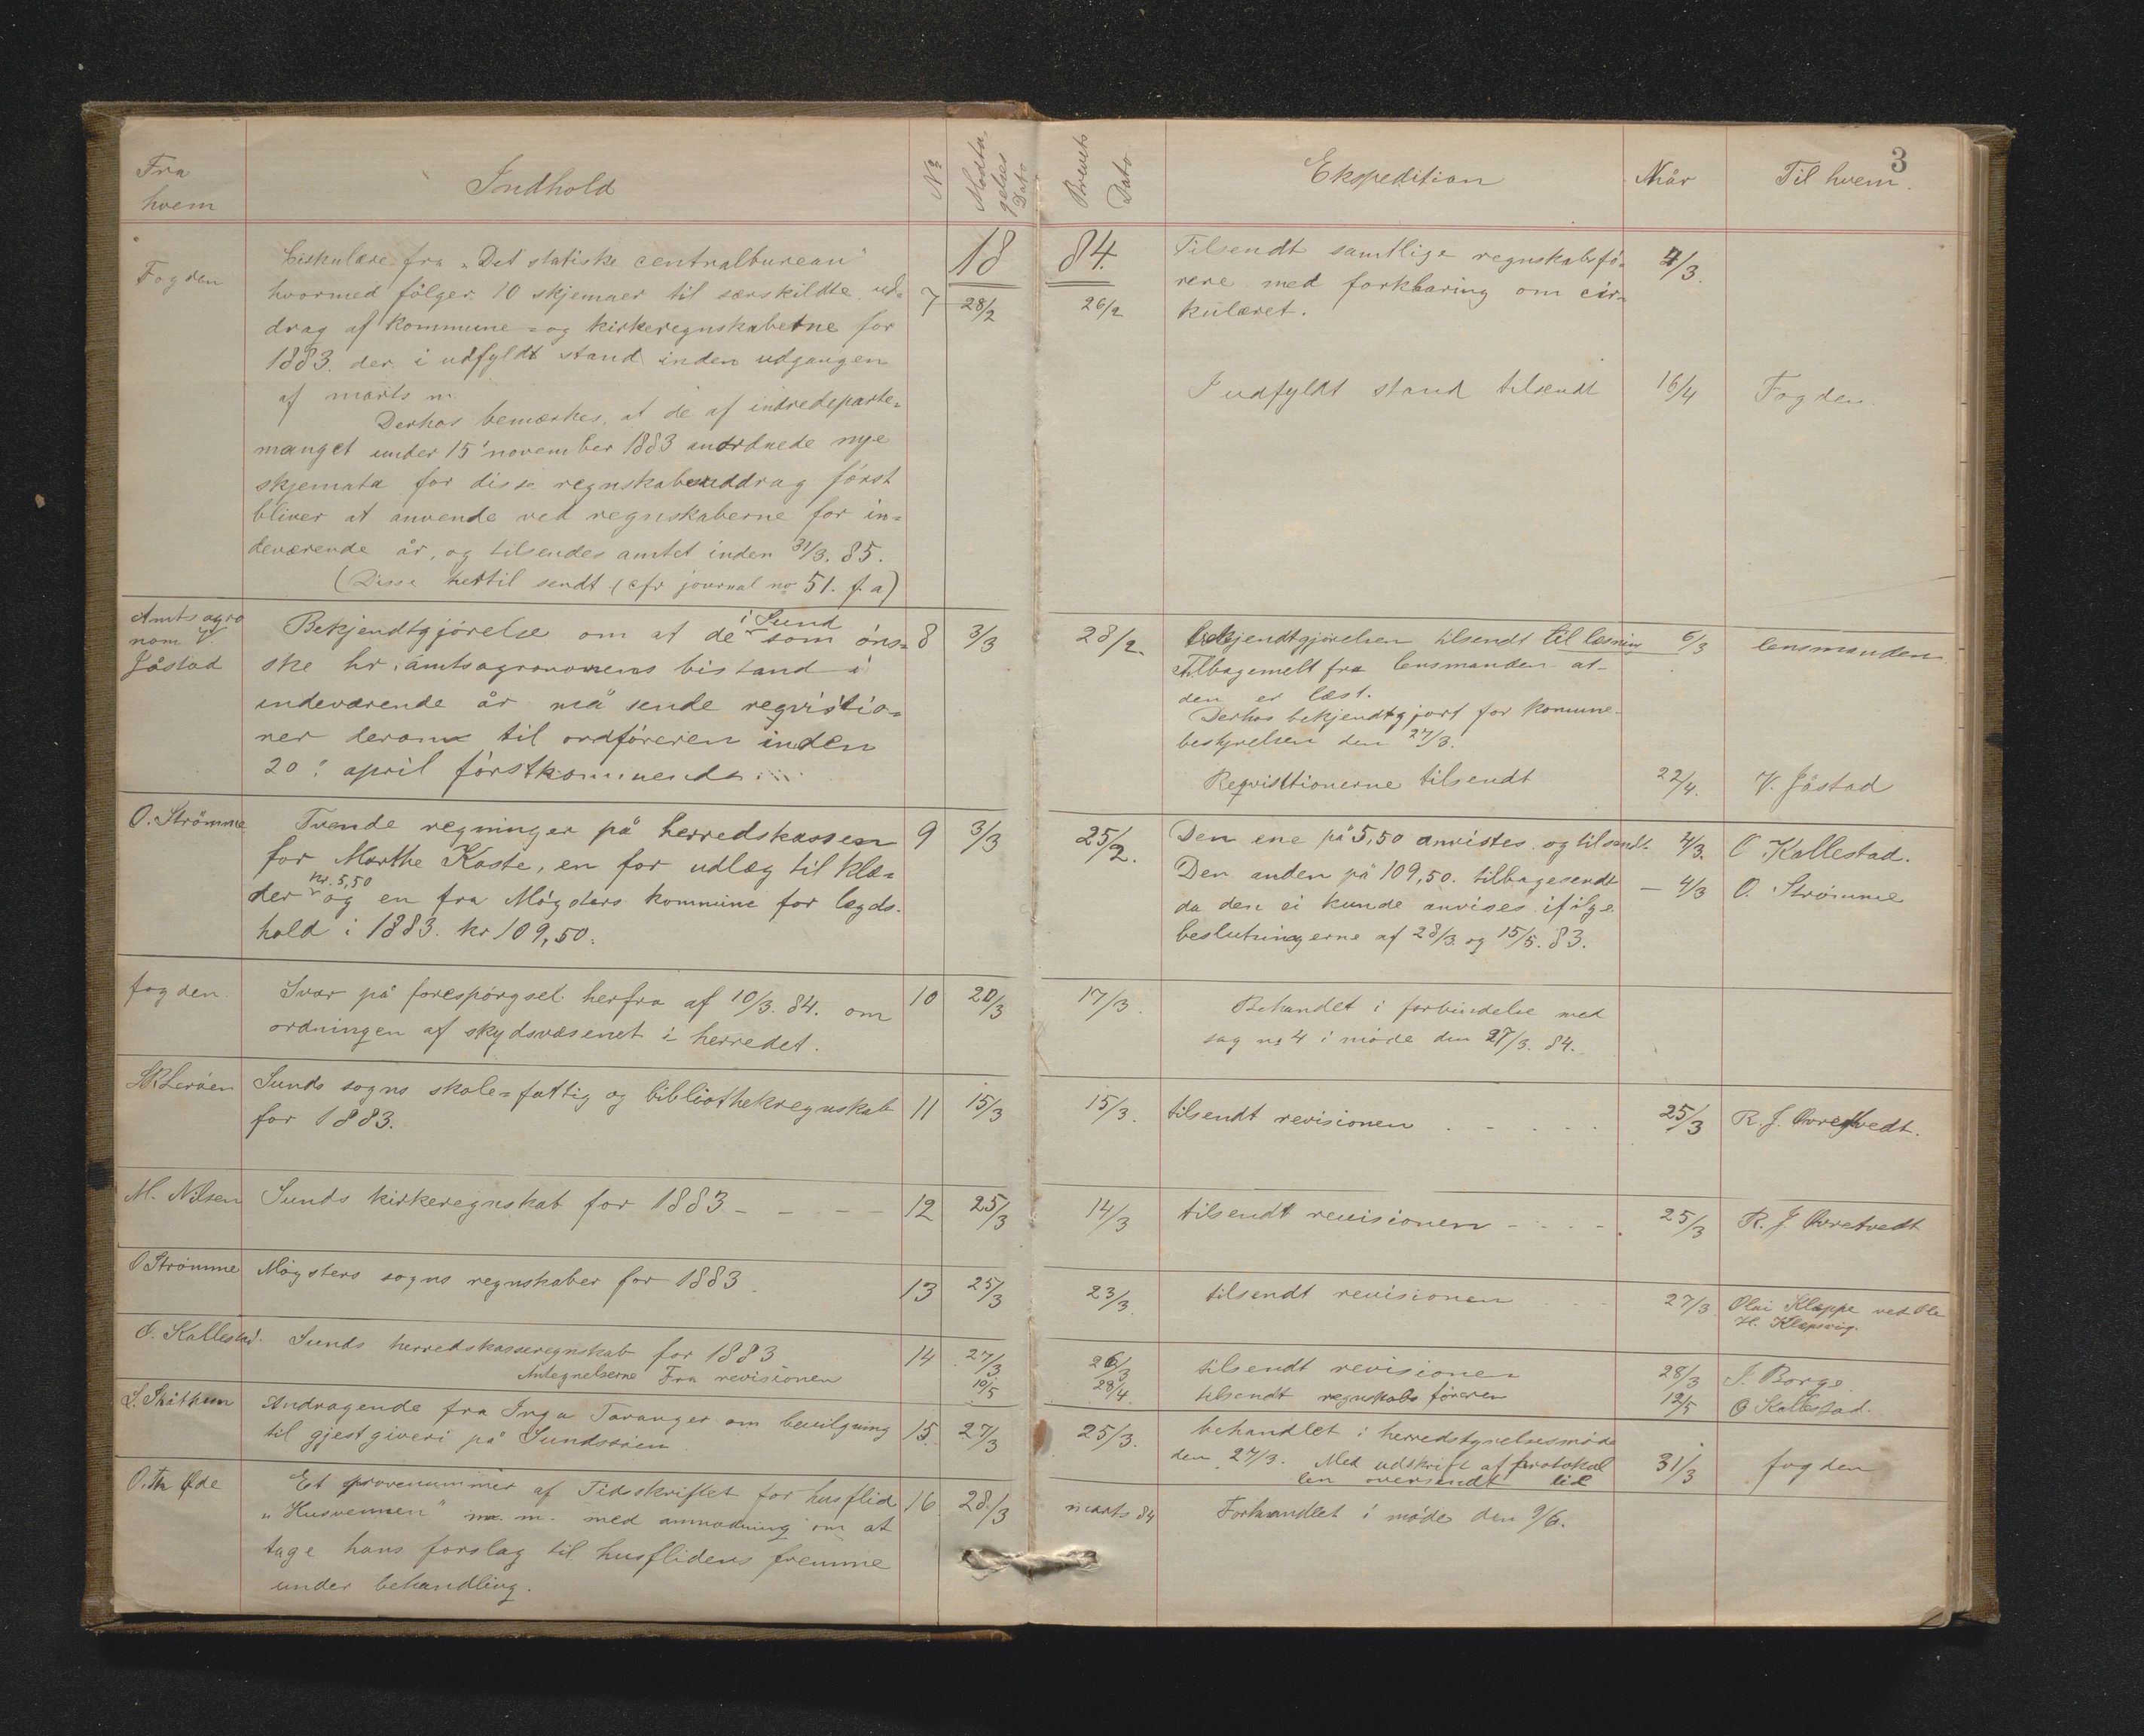 3
Fra hvem
Indhold
No
Modtagelses Dato
Brevets Dato
Ekspedition
Når
Til hvem.
18 84.
Fogden
Cirkulære fra „Det statiske centralbureau"
hvormed følger 10 skjemaer til særskildte ud-
drag af kommune- og kirkeregnskaberne for
1883. der i udfyldt stand inden udgangen
af marts m.
Derhos bemærkes, at de af indredeparte-
manget under 15' november 1883 anordnede nye
skjemata for disse regnskabsuddrag først
bliver at anvende ved regnskaberne for in-
deværende år, og tilsendes amtet inden 31/3. 85.
(Disse hertil sendt (cfr journal no 51. f. a)
7
28/2
26/2
Tilsendt samtlige regnskabsfø-
rere med forklaring om cir-
kulæret.
4/3.
I udfyldt stand tilsendt
16/4
Fogden.
Amtsagro
nom V
Jåstad
Bekjendtgjørelse om at de i Sund som øns-
ske hr. amtsagronomens bistand i
indeværende år må sende reqvisitio-
ner derom til ordføreren inden
20: april førstkommende
8
3/3
28/2.
Bekjendtgjørelsen tilsendt til læsning
Tilbagemelt fra lensmanden at
den er læst.
Derhos bekjendtgjort for komune-
bestyrelsen den 27/3.
6/3
lensmanden
Reqvisitionerne tilsendt
22/4.
V. Jåstad
O. Strömme
Tvende regninger på herredskassen
for Marthe Kaste, en for udlæg til klæ-
der kr. 5,50 og en fra Møgsters kommune for lægds-
hold i 1883. kr 109,50.
9
3/3
25/2.
Den ene på 5,50 anvistes og tilsendt
4/3.
O Kallestad.
Den anden på 109,50. tilbagesendt
da den ei kunde anvises ifølge
beslutningerne af 28/3. og 15/5. 83.
4/3
O. Strömme
fogden
Svar på forespørgsel herfra af 10/3. 84. om
ordningen af skydsvæsenet i herredet.
10
20/3
17/3.
Behandlet i forbindelse med
sag no 4 i møde den 27/3. 84.
Lerøen
Sunds sogns skole- fattig og bibliothekregnskab
for 1883.
11
15/3
15/3.
tilsendt revisionen
25/3
R. J. Øvretvedt.
M. Nilsen
Sunds kirkeregnskab for 1883 - - - -
12
25/3
14/3
tilsendt revisionen - - - -
25/3
R. J. Øvretvedt
O Strömme
Møgsters sogns regnskaber for 1883.
13
25/3
23/3
tilsendt revisionen
27/3
Olai Klæppe ved Ole
H. Klæpsvig.
O. Kallestad.
Sunds herredskasseregnskab for 1883
14
27/3.
26/3
tilsendt revisionen
28/3
J. Borge.
Antegnelserne Fra revisionen
10/5
28/4
tilsendt regnskabsføreren
12/5
O Kallestad.
Andragende fra Inga Taranger om bevilgning
til gjestgiveri på Sundsøien
15
27/3
25/3.
behandlet i herredstyrelsesmøde
den 27/3. Med udskrift af protokol
len oversendt til
31/3
fogden
O. Th Øde
Et prøvenummer af Tidsskriftet for husflid
„Husvennen" m. m. med anmodning om at
tage hans forslag til husflidens fremme
under behandling.
16
28/3
marts 84
Forhandlet i møde den 9/6.